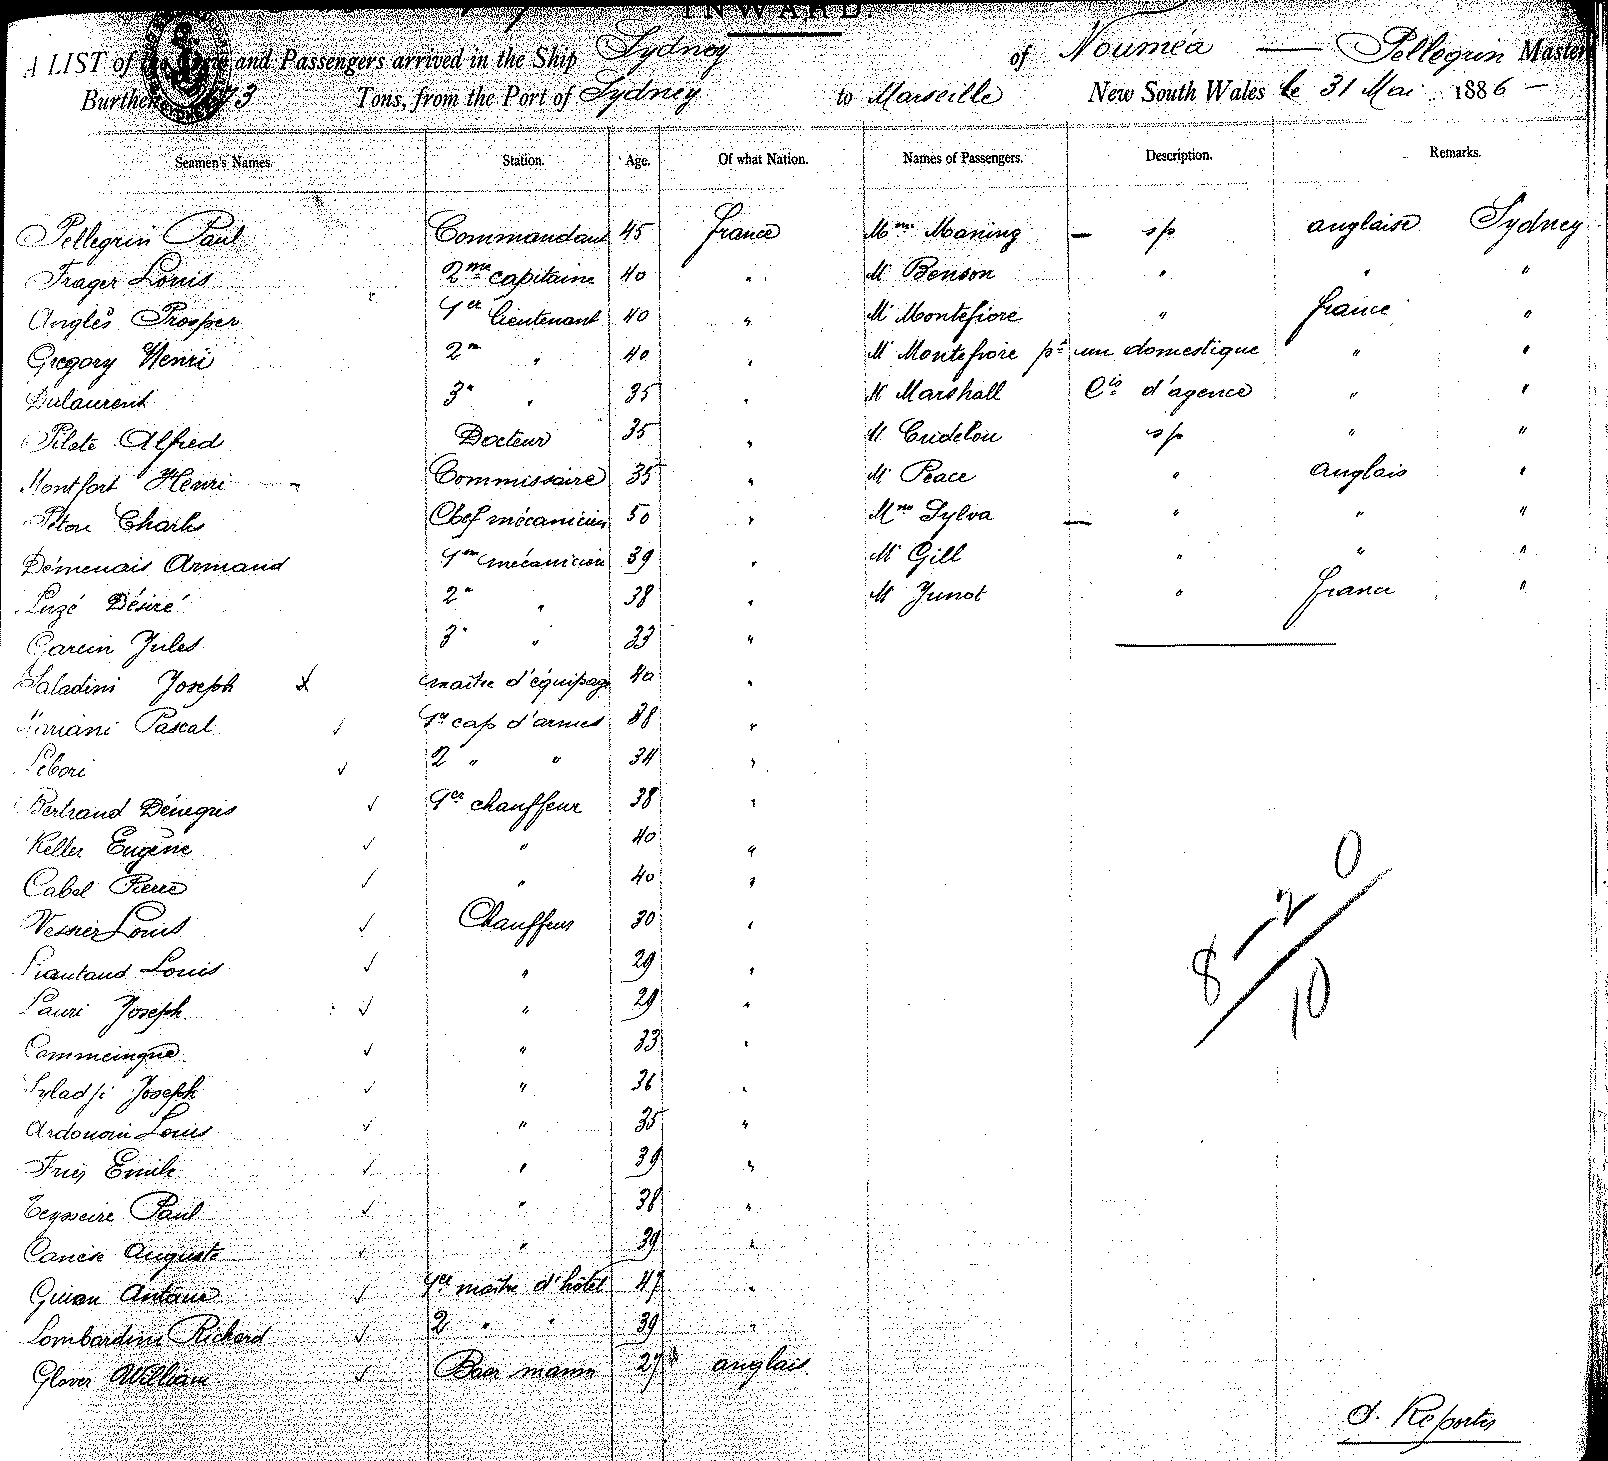 INWARD.
A LIST of the Crew and Passengers arrived in the Ship Sydney of Nouméa — Pellegrin Master
Burthen 73 Tons, from the Port of Sydney to Marseille New South Wales le 31 Mai 1886 —
Seamen's Names. Station. Age. Of what Nation. Names of Passengers. Description. Remarks.
Pellegrin Paul Commandant 45 france Mme Maning — s/p anglaise Sydney
Frager Louis 2me capitaine 40 " M Benson " " "
Anglès Prosper 1er lieutenant 40 " M Montefiore " france "
Gregory Henri 2m " 40 " M Montefiore pr un domestique " "
Dulaurent 3e " 35 " M Marshall Cis d'agence " "
Pilate Alfred Docteur 35 " M Cridelou s/p " "
Montfort Henri Commissaire 35 " M Peace " anglais "
Piton Charles Chef mécanicien 50 " Mme Sylva — " " "
Démenais Armand 1er mécanicien 39 " M Gill " " "
Luzé Désiré 2e " 38 " M Junot " france "
Garcin Jules 3e " 33 "
Saladini Joseph maître d'équipage 40 "
Mariani Pascal 1er cap d'armes 38 "
Lebori 2 " " 34 "
Bertrand Dénegris 1er chauffeur 38 "
Keller Eugène " 40 "
Cabel Pierre " 40 "
Vessier Louis Chauffeur 30 "
Louis " 29 "
Lauri Joseph " 29 "
Commeingue " 33 "
Joseph " 36 "
Ardouin Louis " 35 "
Emile " 39 "
Teysseire Paul " 38 "
Auguste " 39 "
Guian Antoine 1er maître d'hôtel 47 "
Lombardini Richard 2 " " 39 "
Glover William 27 anglais
8 – 2 0
10